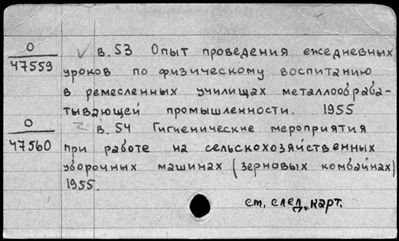 О
47559
в. 53 Опыт проведения ежедневных
уроков по физическому воспитанию
в ремесленных училищах металлообраба-
тывающей промышленности. 1955
О
47560
в. 54 Гигиенические мероприятия
при работе на сельскохозяйственных
уборочных машинах (зерновых комбайнах)
1955.
ст. след. карт.